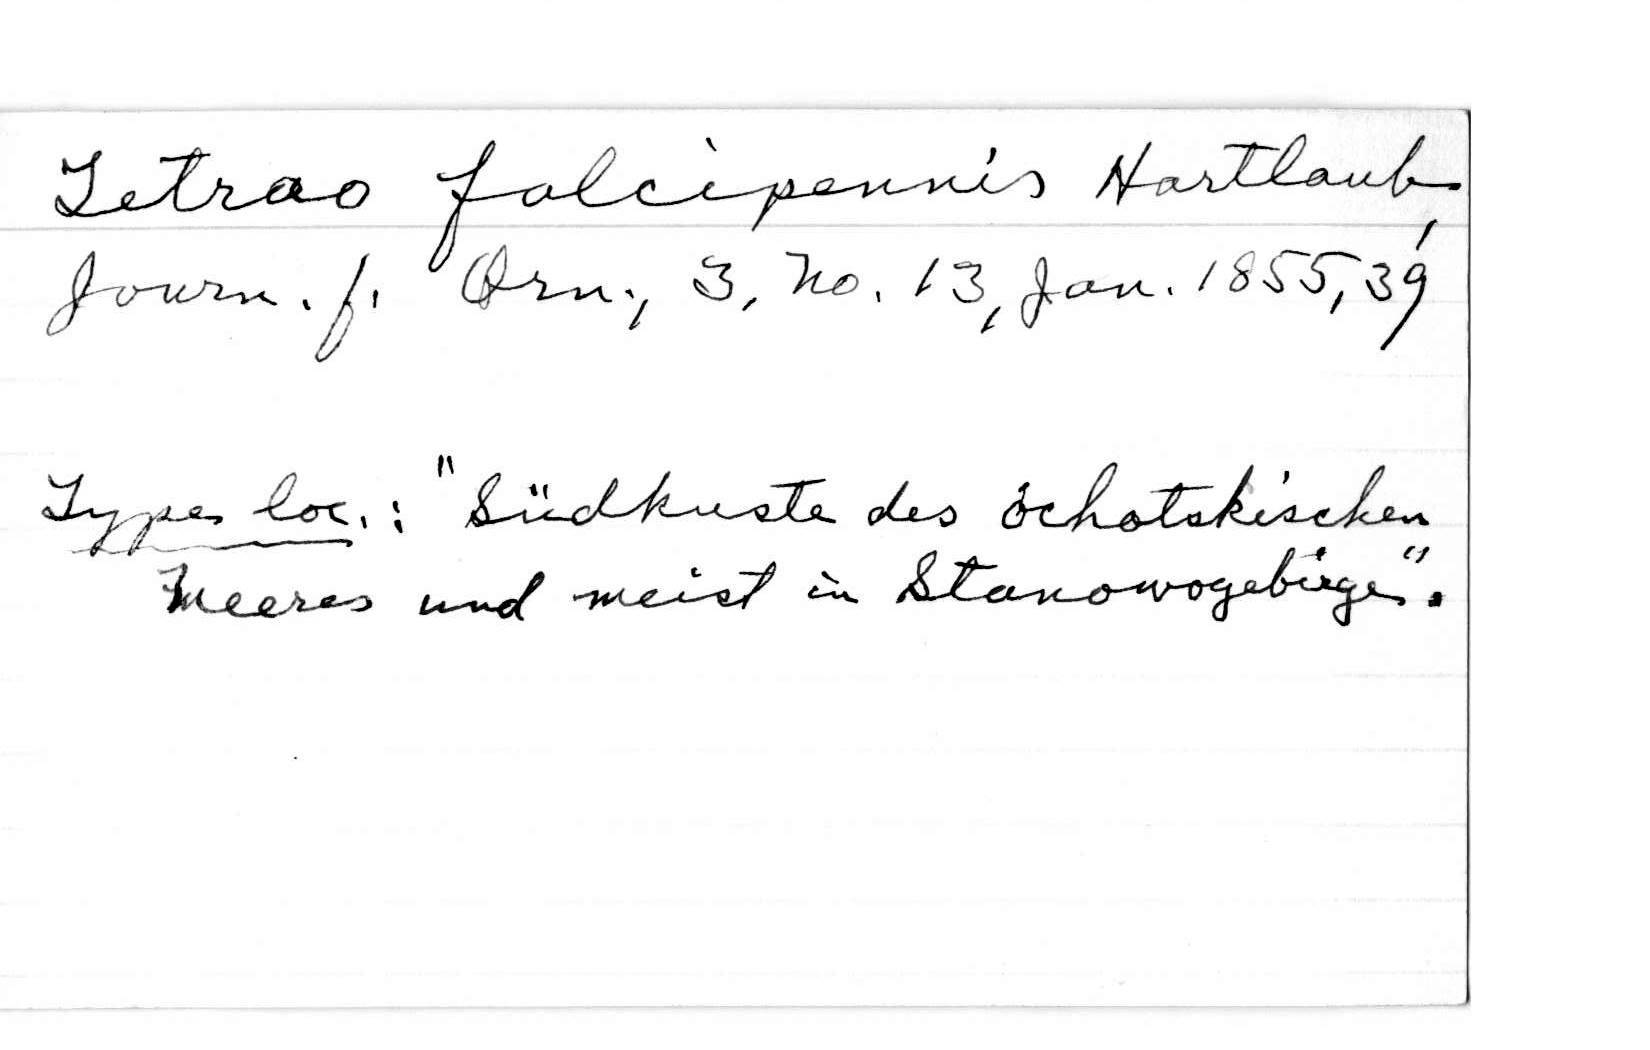 Tetrao falcipennis Hartlaub,
Journ. f. Orn., 3, No. 13, Jan. 1855, 39
Type loc.: "Südkuste des ochotskischen
Meeres und meist in Stanowogebirge".